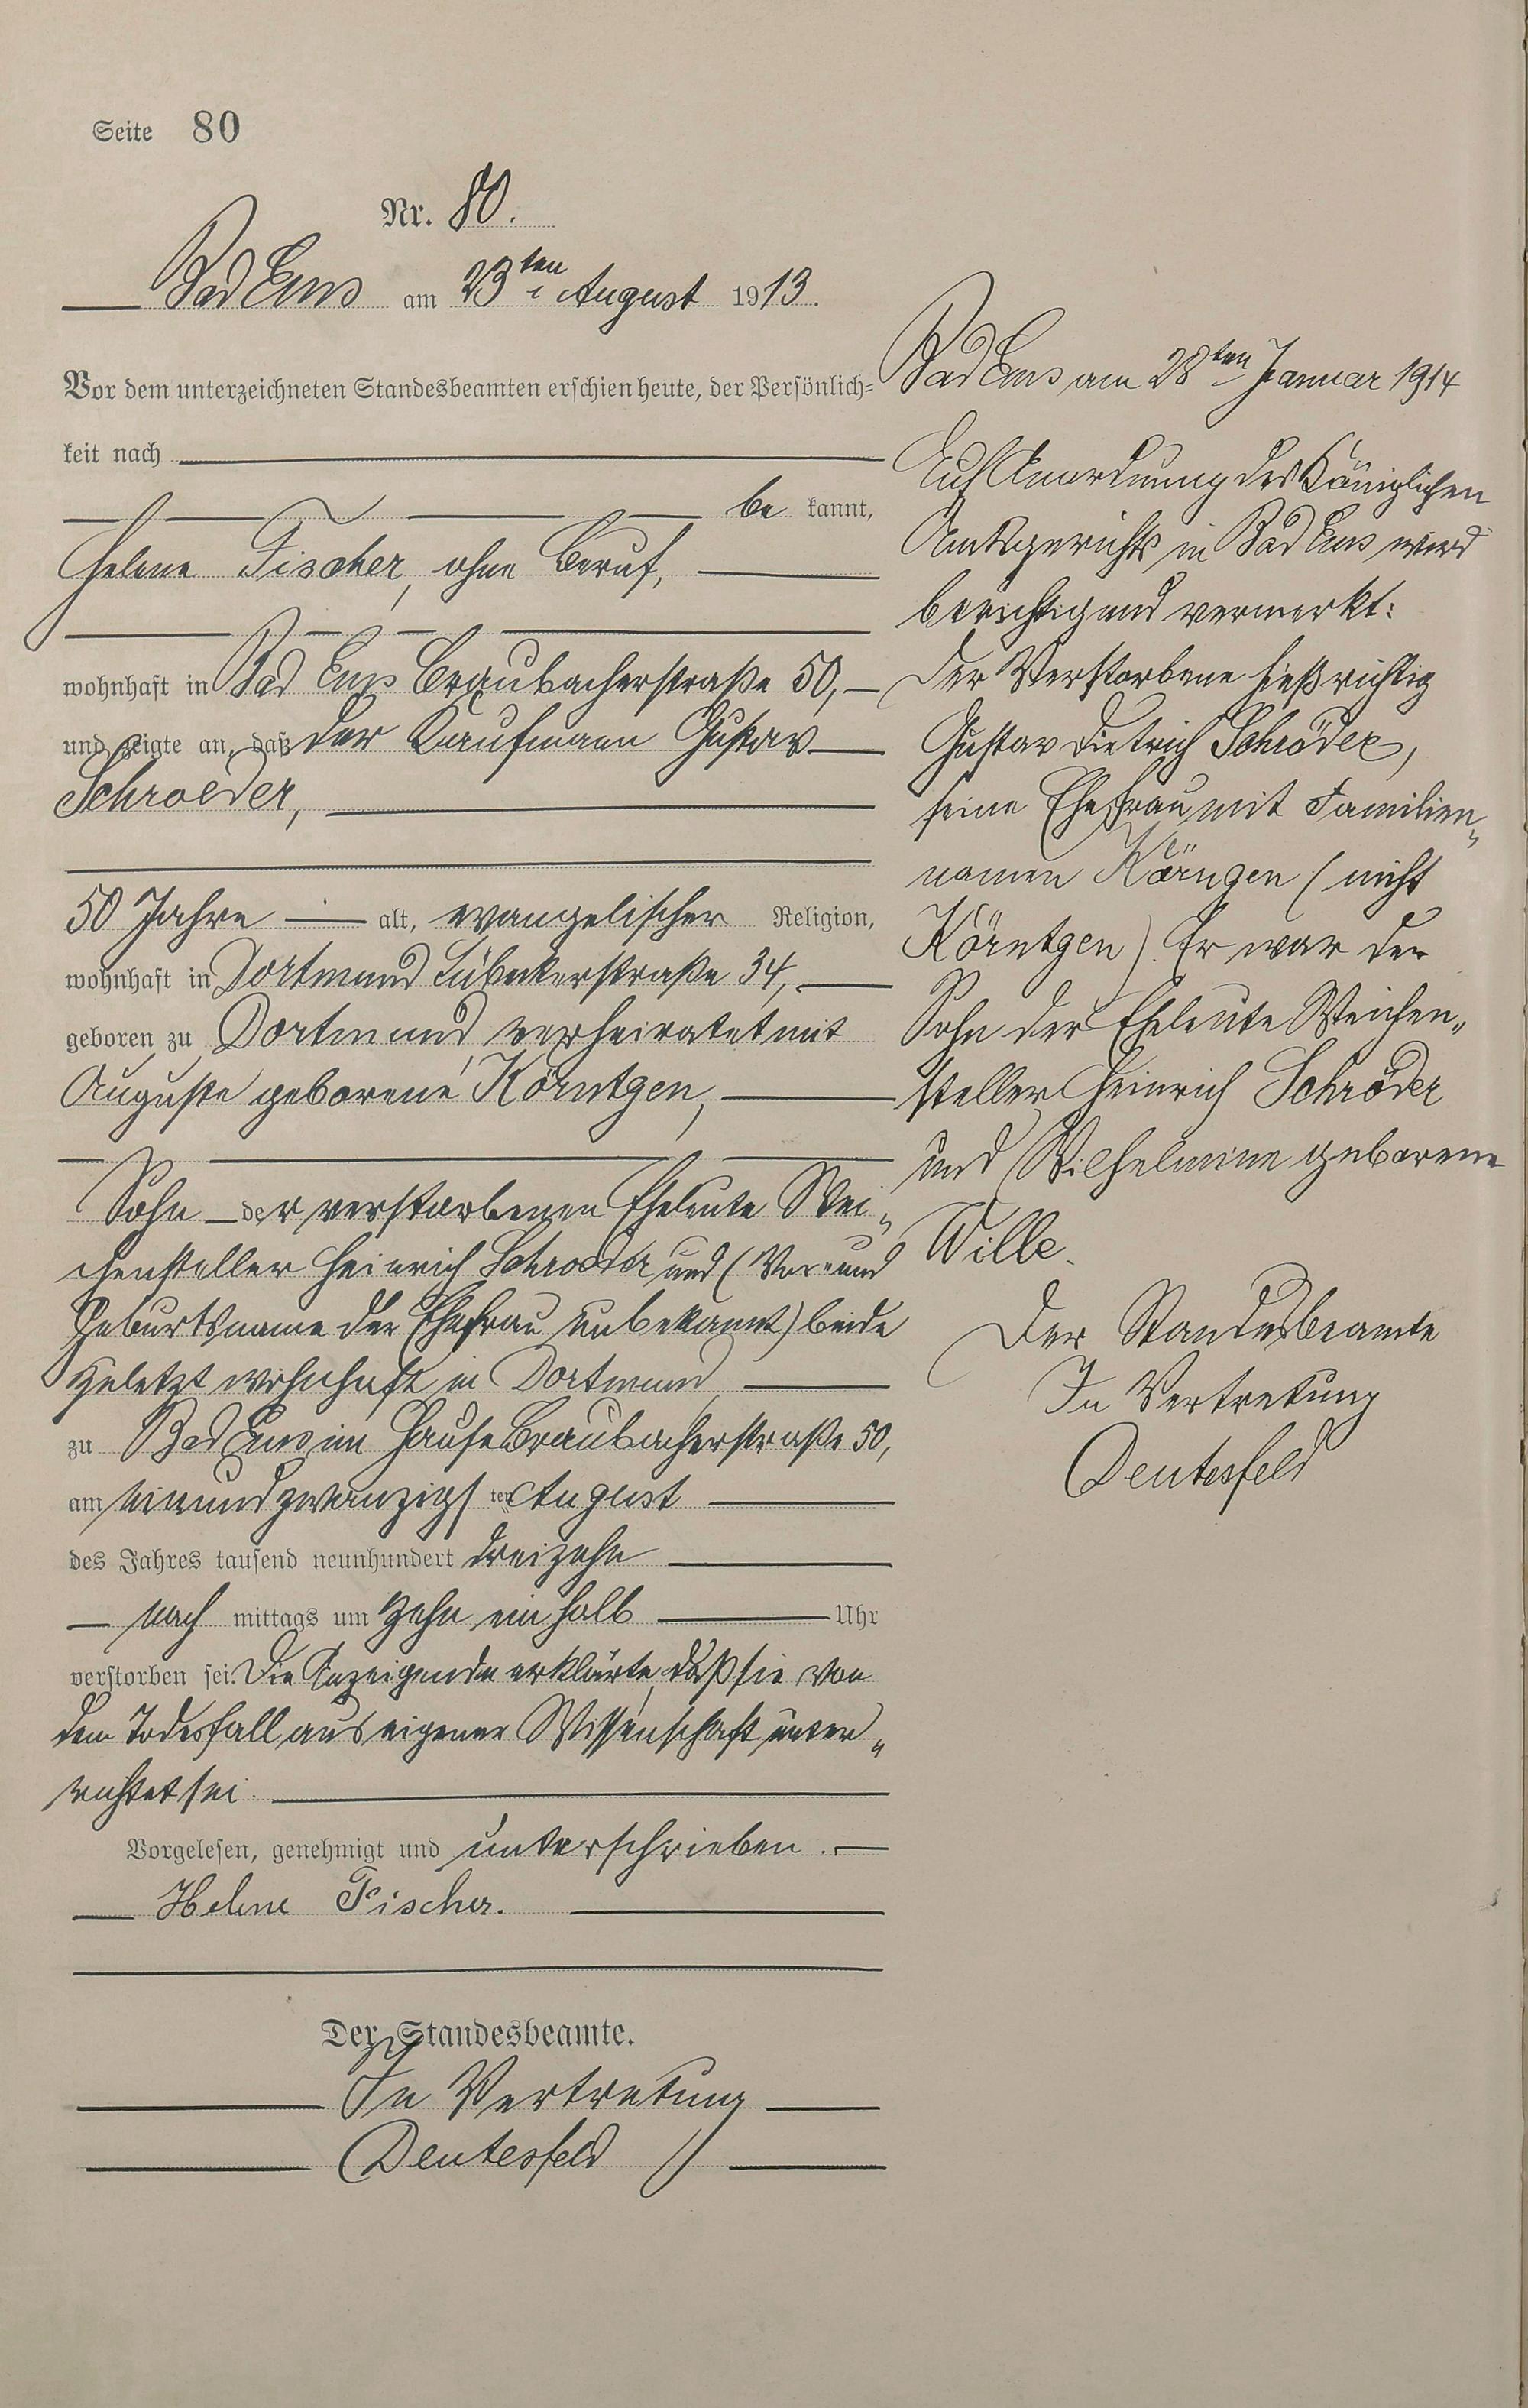 Seite 80
Nr. 80.
Bad Ems am 23ten August 1913.
Vor dem unterzeichneten Standesbeamten erschien heute, der Persönlich=
keit nach
be kannt,
Helene Fischer, ohne Beruf,
wohnhaft in Bad Ems Braubacherstraße 50,
und zeigte an, daß der Kaufmann Gustav
Schroeder,
50 Jahre alt, evangelischer Religion,
wohnhaft in Dortmund Lübeckerstraße 34,
geboren zu Dortmund, verheiratet mit
Auguste geborene Körntgen,
Sohn der verstorbenen Eheleute Wei„
chensteller Heinrich Schroeder und (Vor- und
Geburtsname der Ehefrau unbekannt) beide
zuletzt wohnhaft in Dortmund
zu Bad Ems im Hause Braubacherstraße 50,
am einundzwanzigsten August
des Jahres tausend neunhundert dreizehn
nach mittags um zehn ein halb Uhr
verstorben sei. Die Anzeigende erklärte, daß sie von
dem Todesfall aus eigener Wissenschaft unter„
richtet sei.
Vorgelesen, genehmigt und unterschrieben.
Helene Fischer.
Der Standesbeamte.
In Vertretung
Deutesfeld
Bad Ems am 28ten Januar 1914
Auf Anordnung des Königlichen
Amtsgerichts in Bad Ems wird
berichtigend vermerkt:
Der Verstorbene hieß richtig
Gustav Dietrich Schröder,
seine Ehefrau mit Familien„
namen Körngen (nicht
Körntgen). Er war der
Sohn der Eheleute Weichen„
steller Heinrich Schröder
und Wilhelmine geborene
Wille.
Der Standesbeamte
In Vertretung
Deutesfeld